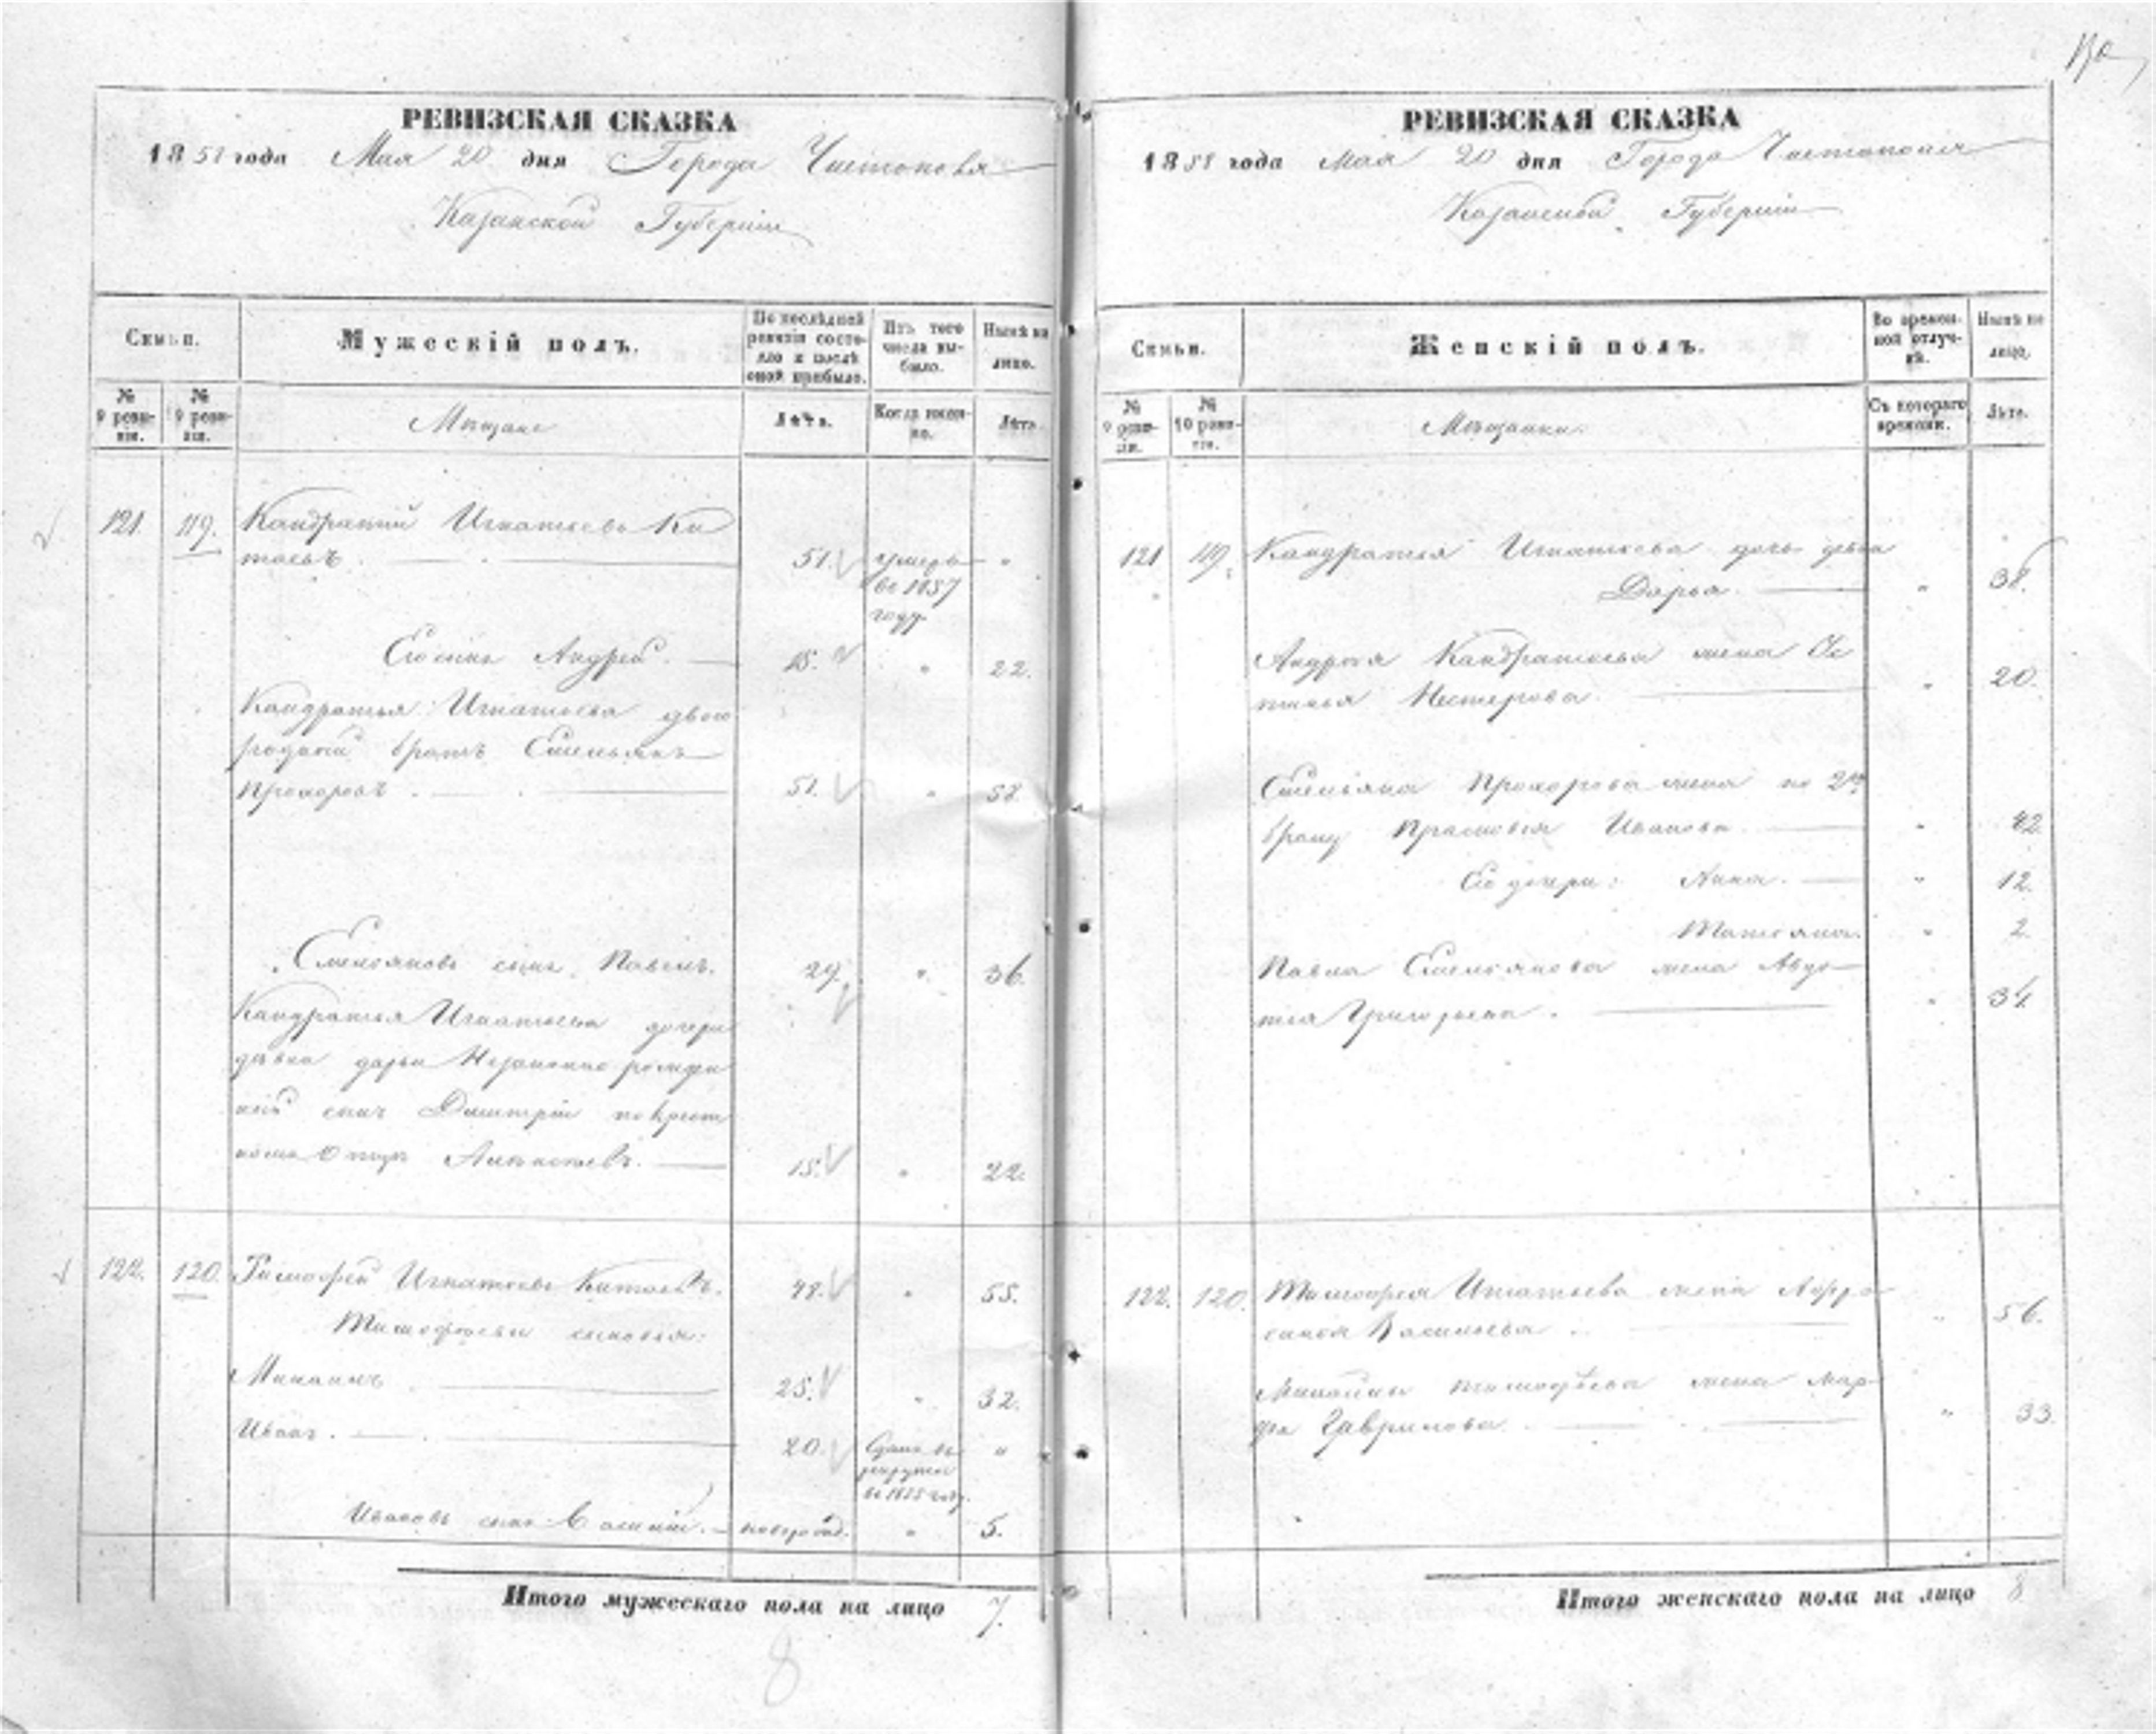 РЕВИЗСКАЯ СКАЗКА
1858 года Мая 20 дня Города Чистополя
Казанской Губернии
Семьи.
Мужескій полъ.
По послѣдней ревизіи состояло и послѣ оной прибыло.
Изъ того числа выбыло.
Нынѣ на лицо.
№ 9 ревизіи.
№ 10 ревизіи.
Мещане
Лѣта.
Когда именно.
Лѣта.
121. 119. Кандратий Игнатьевъ Ки
таевъ. 51. умеръ "
въ 1857
году
Его сынъ Андрей. 15. " 22.
Кандратья Игнатьева двою
родной братъ Емельянъ
Прохоровъ. 51. " 58.
Емельяновъ сынъ Павелъ. 29. " 36.
Кандратья Игнатьева дочери
девки дарьи Незаконно рожден
ный сынъ Дмитрій по крест
ному Отцу 15. " 22.
122. 120. Тимофей Игнатьевъ Китаевъ. 48. " 55.
Тимофеевы сыновья:
Михаилъ 25. " 32.
Иванъ. 20. Сданъ въ "
рекруты
въ 1855 году.
Ивановъ сынъ Василий. новорожд. " 5.
Итого мужескаго пола на лицо 7.
8
РЕВИЗСКАЯ СКАЗКА
1858 года Мая 20 дня Города Чистополя
Казанской Губернии
Семьи.
Женскій полъ.
Во временной отлучкѣ.
Нынѣ на лицо.
№ 9 ревизіи.
№ 10 ревизіи.
Мѣщанки.
Съ котораго времени.
Лѣта.
121 119. Кандратья Игнатьева дочь девка
Дарья. " 38.
Андрея Кандратьева жена Ус
тинья Нестерова. " 20.
Емельяна Прохорова жена по 2му
браку Прасковья Иванова. " 42.
Его дочери: Анна. " 12.
Татьяна. " 2.
Павла Емельянова жена Авдо
тья Григорьева. " 34.
122. 120. Тимофея Игнатьева жена Афро
синья Васильева. " 56.
Михайлы Тимофѣева жена Мар
фа Гаврилова. " 33.
Итого женскаго пола на лицо 8